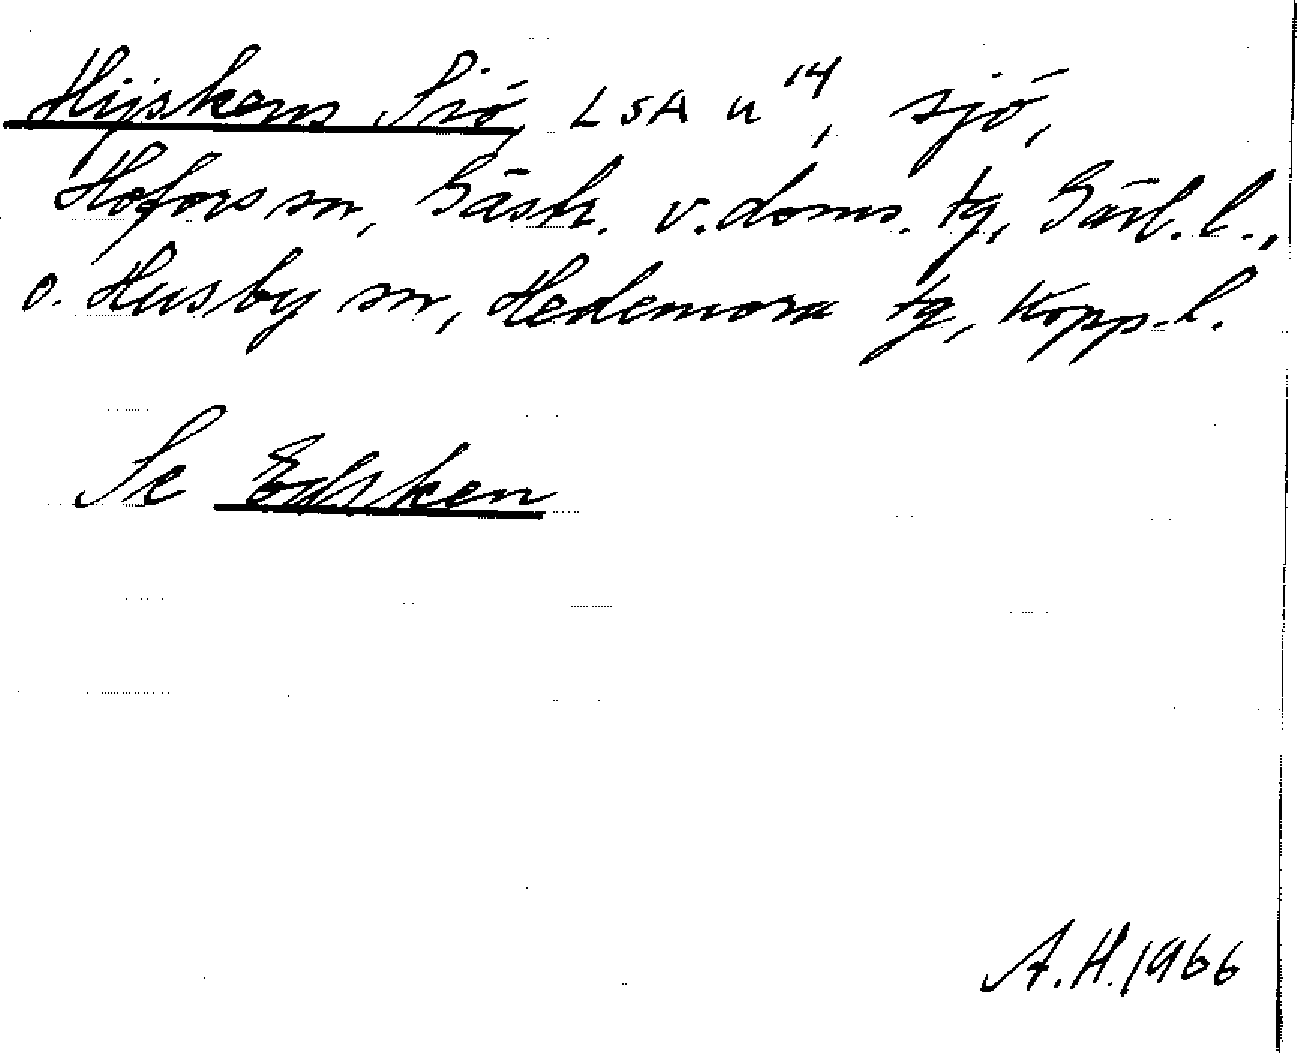 Hijskens Siö, LSA u 14, sjö,
Hofors sn, Gästr. v. doms. tg, Gävl. l.,
o. Husby sn, Hedemora tg, Kopp. l.
Se Edsken
A.H. 1966